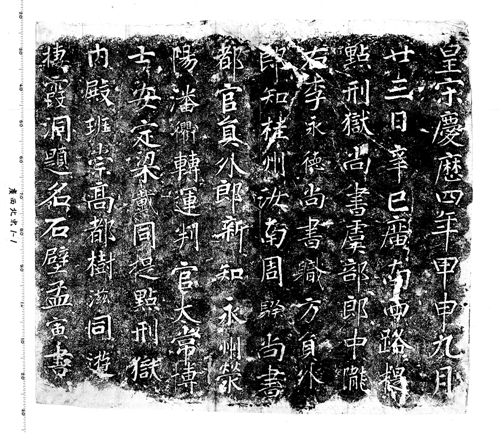 皇宋慶曆四年甲申九月
廿三日辛巳廣南西路提
點刑獄尚書虞部郎中隴
右李永德尚書職方員外
郎知桂州汝南周陵尚書
都官員外郎新知永州滎
陽潘衢轉運判官大常博
士安定梁薫同提點刑獄
内殿班崇高都樹滋同遊
棲霞洞題名石壁孟寅書
廣西北東ト1